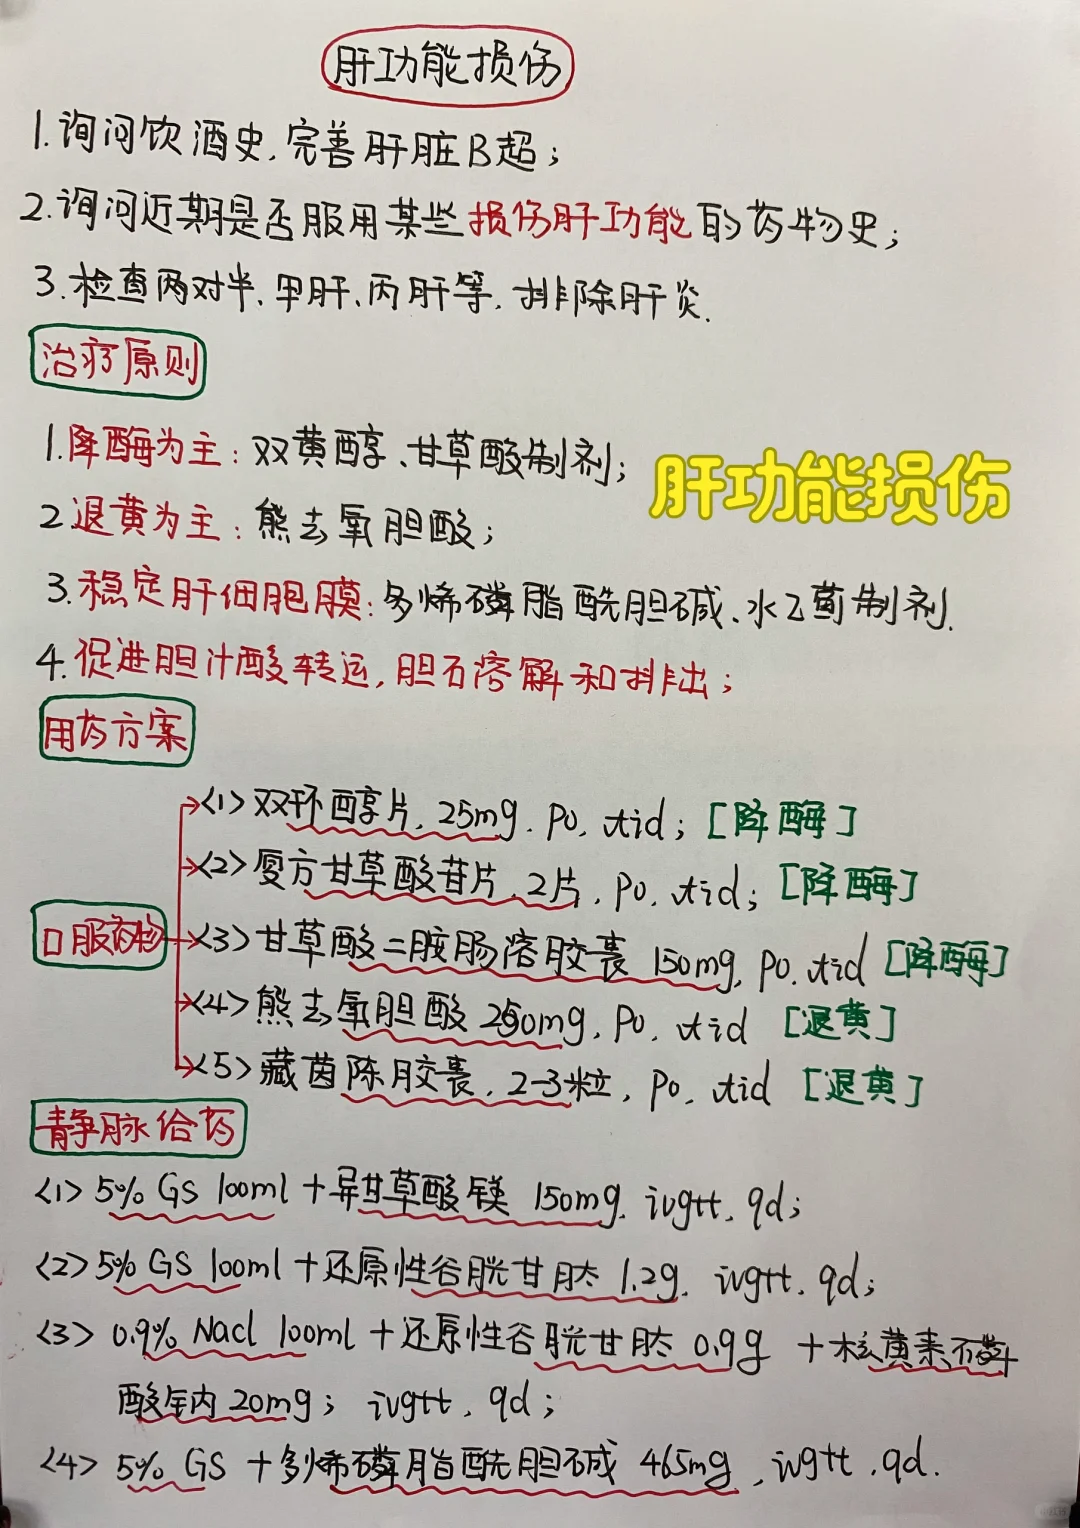 肝功能损伤
1.询问饮酒史,完善肝脏B超;
2.询问近期是否服用某些损伤肝功能的药物史;
3.检查两对半、甲肝、丙肝等,排除肝炎.
治疗原则
1.降酶为主:双黄醇、甘草酸制剂;
肝功能损伤
2.退黄为主:熊去氧胆酸;
3.稳定肝细胞膜:多烯磷脂酰胆碱、水飞蓟制剂.
4.促进胆汁酸转运,胆石溶解和排出;
用药方案
口服药物
<1>双环醇片,25mg.po,tid;[降酶]
<2>复方甘草酸苷片,2片,po,tid;[降酶]
<3>甘草酸二胺肠溶胶囊 150mg,po,tid[降酶]
<4>熊去氧胆酸250mg,po,tid [退黄]
<5>藏茵陈胶囊,2-3粒,po,tid [退黄]
静脉给药
<1>5% GS 100ml+异甘草酸镁 150mg,ivgtt,qd;
<2>5% GS 100ml+还原性谷胱甘肽 1.2g,ivgtt,qd;
<3>0.9% Nacl 100ml+还原性谷胱甘肽 0.9g +核黄素磷
酸钠 20mg;ivgtt,qd;
<4>5% GS +多烯磷脂酰胆碱 465mg,ivgtt,qd.